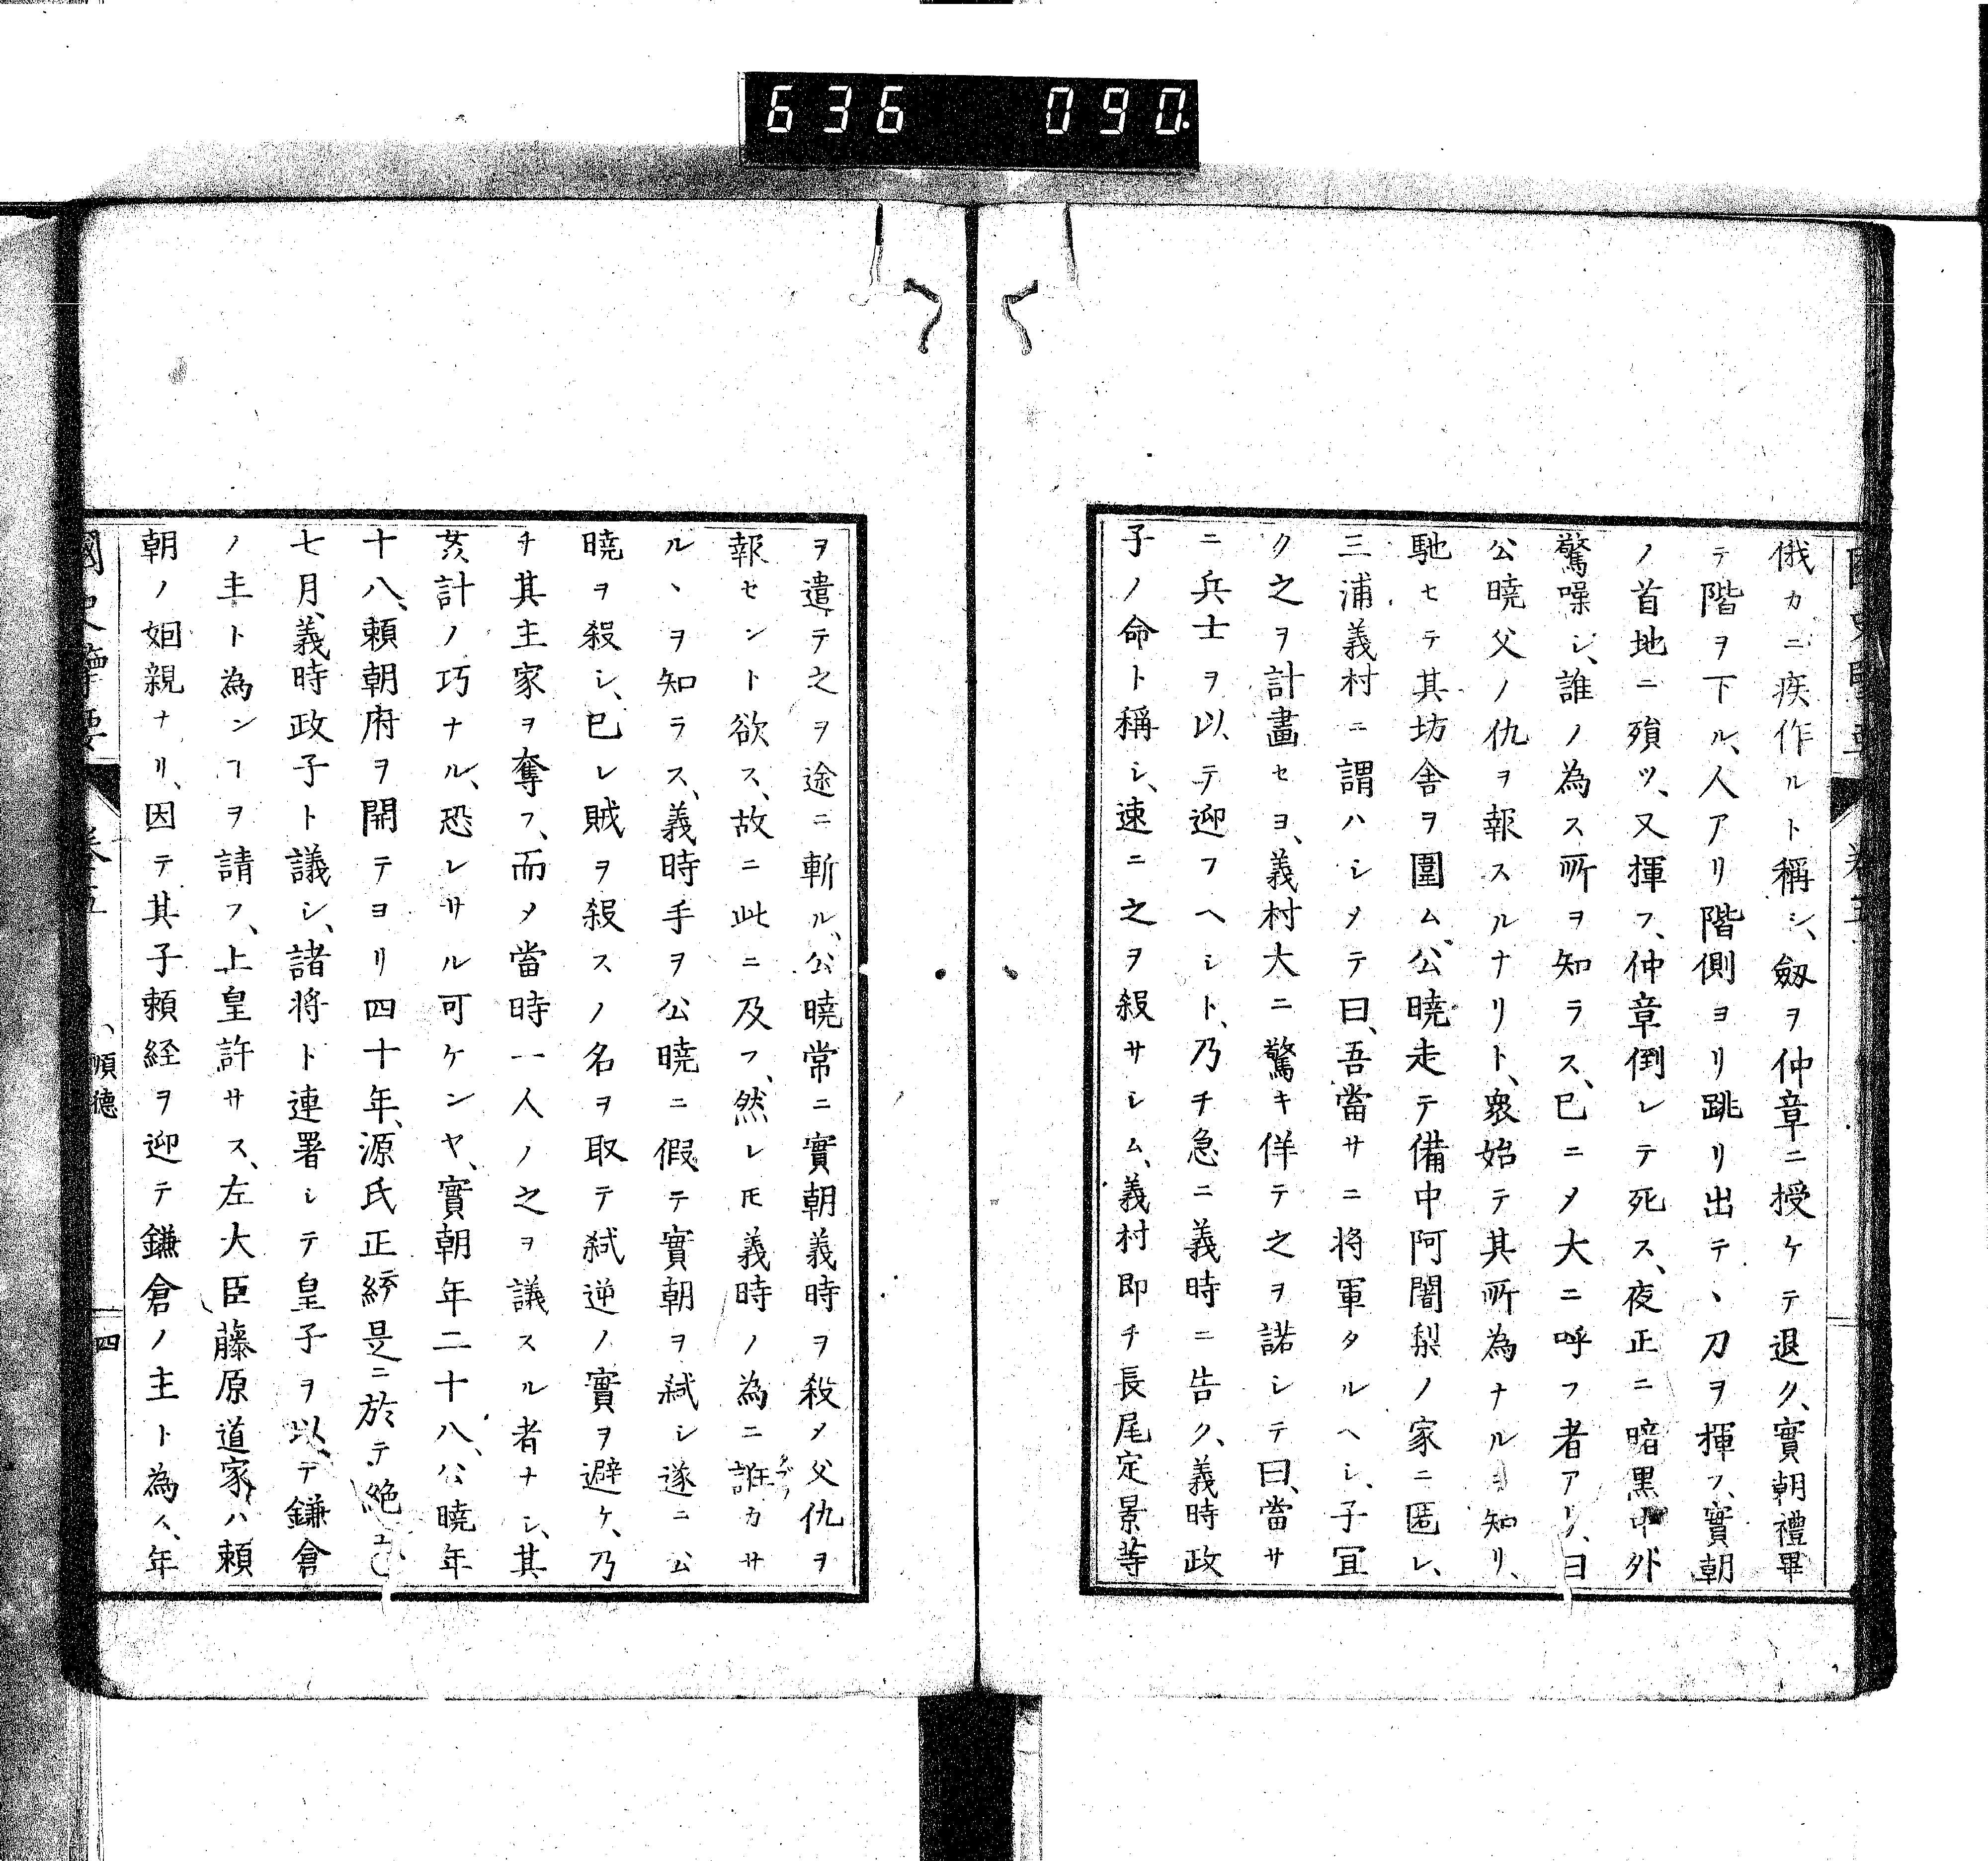 636 090
俄カニ疾作ルト稱シ、劔ヲ仲章ニ授ケテ退ク、實朝禮畢
テ階ヲ下ル、人アリ階側ヨリ跳リ出テ、刀ヲ揮フ、實朝
ノ首地ニ殞ツ、又揮フ、仲章倒レテ死ス、夜正ニ暗黒中外
驚噪シ、誰ノ為ス所ヲ知ラス、已ニメ大ニ呼フ者アリ、曰
公曉父ノ仇ヲ報スルナリト、衆始テ其所為ナルヲ知リ、
馳セテ其坊舎ヲ圍ム、公曉走テ備中阿闍梨ノ家ニ匿レ、
三浦義村ニ謂ハシメテ曰、吾當サニ将軍タルヘシ、子宜
ク之ヲ計畫セヨ、義村大ニ驚キ佯テ之ヲ諾シテ曰、當サ
ニ兵士ヲ以テ迎フヘシト、乃チ急ニ義時ニ告ク、義時政
子ノ命ト稱シ、速ニ之ヲ殺サシム、義村即チ長尾定景等
ヲ遣テ之ヲ途ニ斬ル、公曉常ニ實朝義時ヲ殺メ父仇ヲ
報セント欲ス、故ニ此ニ及フ、然レ𪜈義時ノ為ニ誑カサ
ルヽヲ知ラス、義時手ヲ公曉ニ假テ實朝ヲ弑シ遂ニ公
曉ヲ殺シ、已レ賊ヲ殺スノ名ヲ取テ弑逆ノ實ヲ避ケ、乃
チ其主家ヲ奪フ、而メ當時一人ノ之ヲ議スル者ナシ、其
姦計ノ巧ナル、恐レサル可ケンヤ、實朝年二十八、公曉年
十八、頼朝府ヲ開テヨリ四十年、源氏正統是ニ於テ絶ユ
七月、義時政子ト議シ、諸将ト連署シテ皇子ヲ以テ鎌倉
ノ主ト為ンヿヲ請フ、上皇許サス、左大臣藤原道家ハ頼
朝ノ姻親ナリ、因テ其子頼経ヲ迎テ鎌倉ノ主ト為ス、年
順德
四